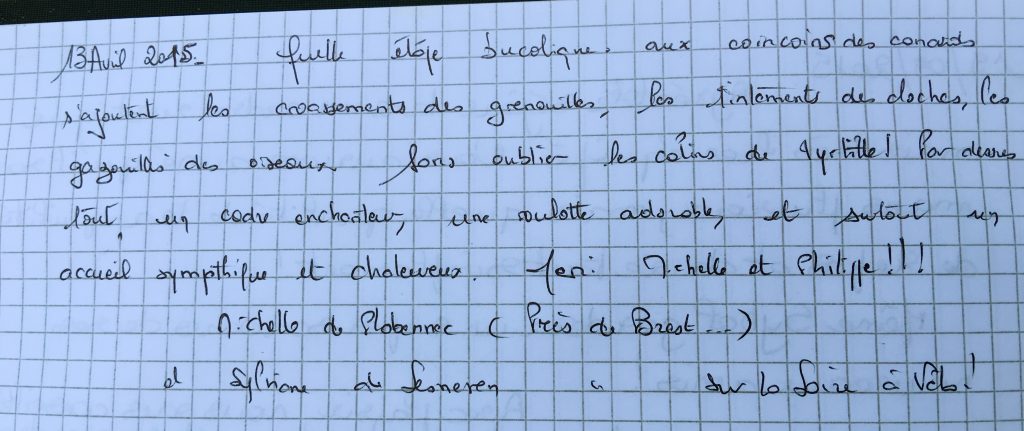 13 Avril 2015. Quelle étape bucolique. aux coincoins des canards
s'ajoutent les croassements des grenouilles, les tintements des cloches, les
gazouillis des oiseaux sans oublier les calins de ! Par dessus
tout, un cadre enchanteur, une roulotte adorable, et surtout un
accueil sympathique et chaleureux. Merci Michelle et Philippe!!!
Michelle de Plabennec (Près de Brest...)
et Sylviane de " sur la Loire à Vélo!